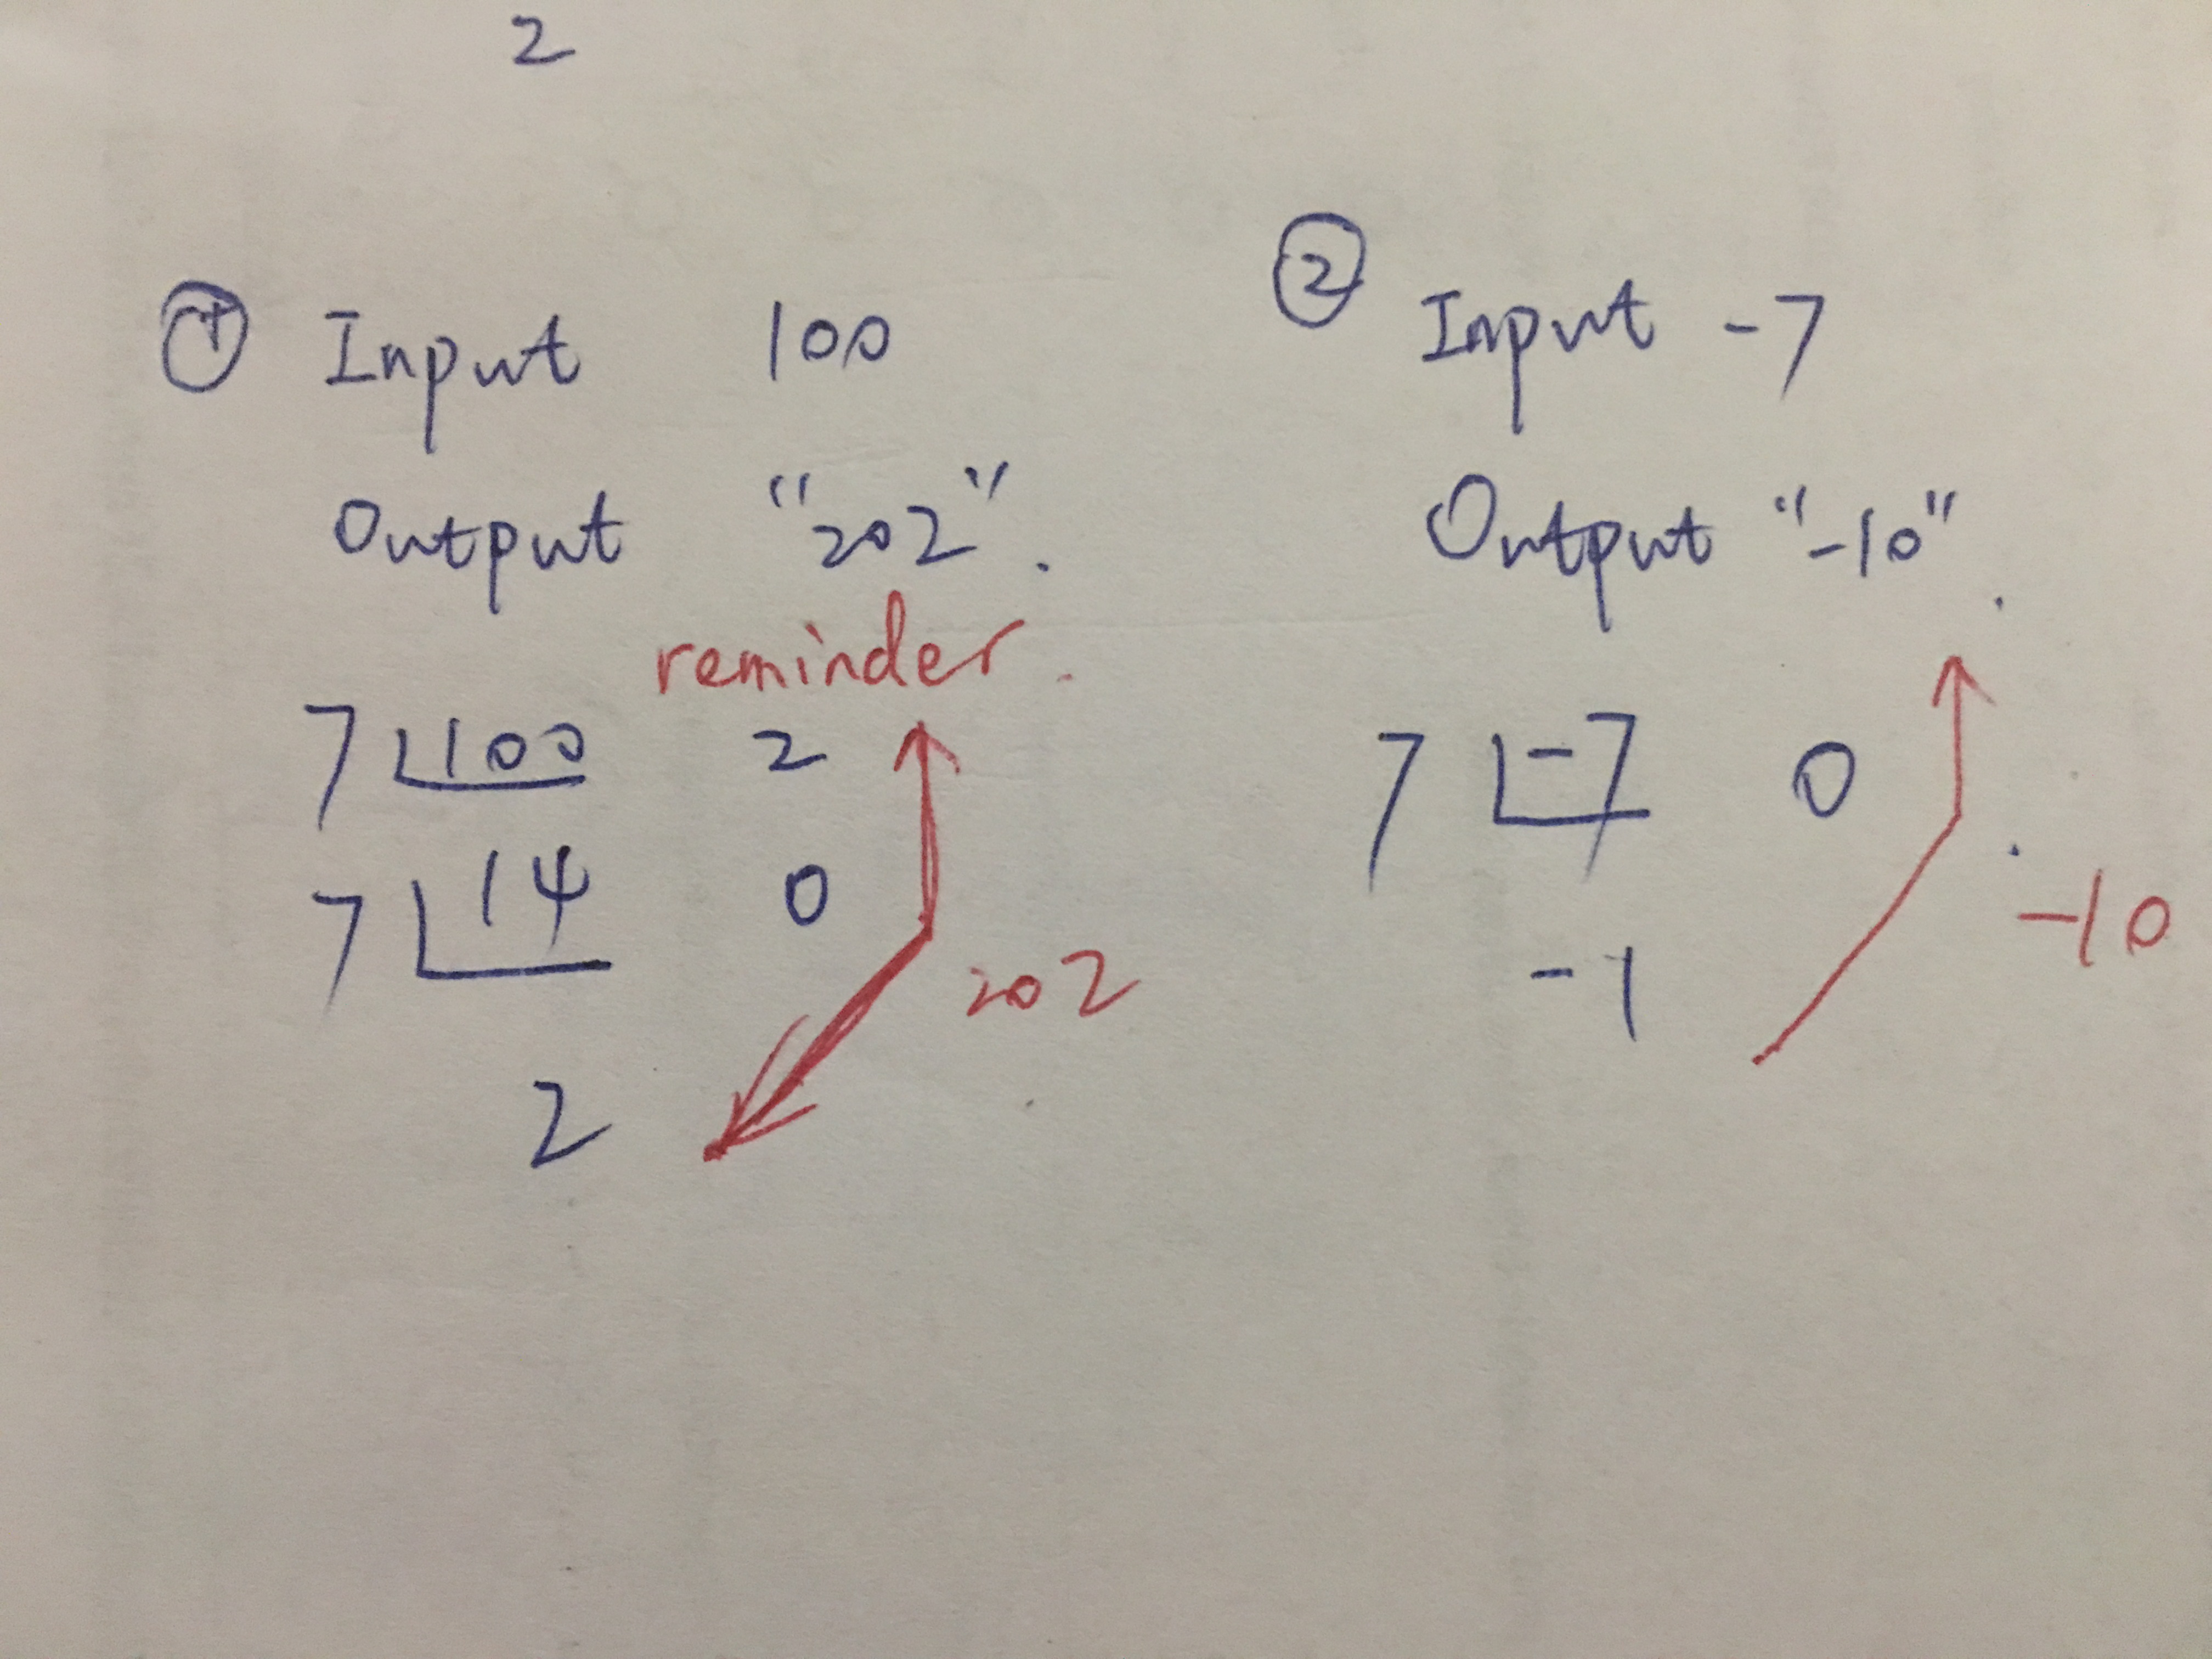 2
① Input 100
Output "202".
reminder
7 100 2
7 14 0
2
202
② Input -7
Output "-10"
7 -7 0
-1
-10